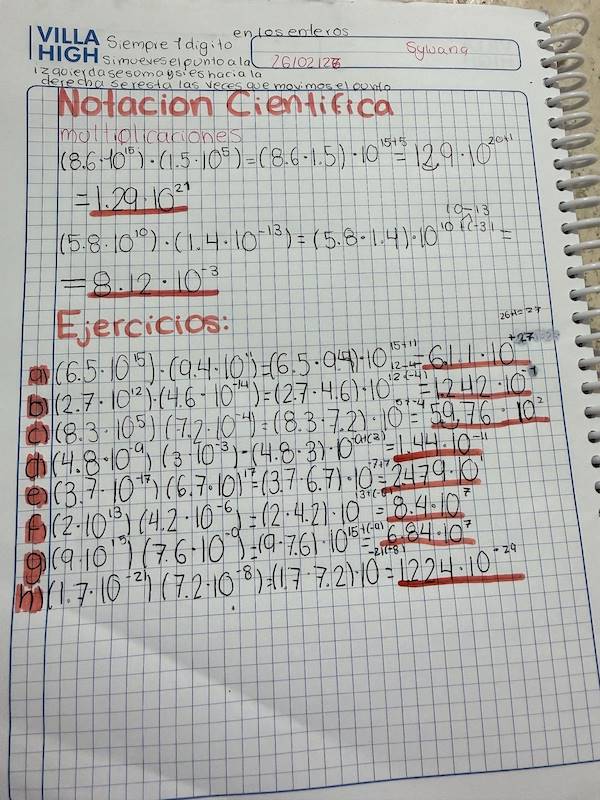 VILLA HIGH
en los enteros
Siempre 1 digito
Sylwana
26/02/26
Si mueves el punto a la
izquierda se soma y si es hacia la
derecha se resta las veces que movimos el punto
Notacion Cientifica
moltiplicaciones
(8.6·10¹⁵)·(1.5·10⁵)=(8.6·1.5)·10¹⁵⁺⁵=12.9·10²⁰⁺¹
=1.29·10²¹
10-13
(5.8·10¹⁰)·(1.4·10⁻¹³)=(5.8·1.4)·10¹⁰⁺⁽⁻³⁾=
=8.12·10⁻³
Ejercicios:
26+1=27
a) (6.5·10¹⁵)·(9.4·10¹¹)=(6.5·9.4)·10¹⁵⁺¹¹=6.11·10⁺²⁷
b) (2.7·10¹²)·(4.6·10⁻¹⁴)=(2.7·4.6)·10=1.242·10
c) (8.3·10⁵)(7.2·10⁻⁴)=(8.3·7.2)·10=59.76·10²
d) (4.8·10⁻⁹)(3·10⁻³)=(4.8·3)·10=1.44·10⁻¹¹
e) (3.7·10⁻¹⁷)(6.7·10)¹⁷=(3.7·6.7)·10=2479·10
f) (2·10¹³)(4.2·10⁻⁶)=(2·4.2)·10=8.4·10⁷
g) (9·10¹⁵)(7.6·10⁻⁹)=(9·7.6)·10=6.84·10⁷
h) (1.7·10⁻²¹)(7.2·10⁻⁸)=(1.7·7.2)·10=1224·10⁻²⁹